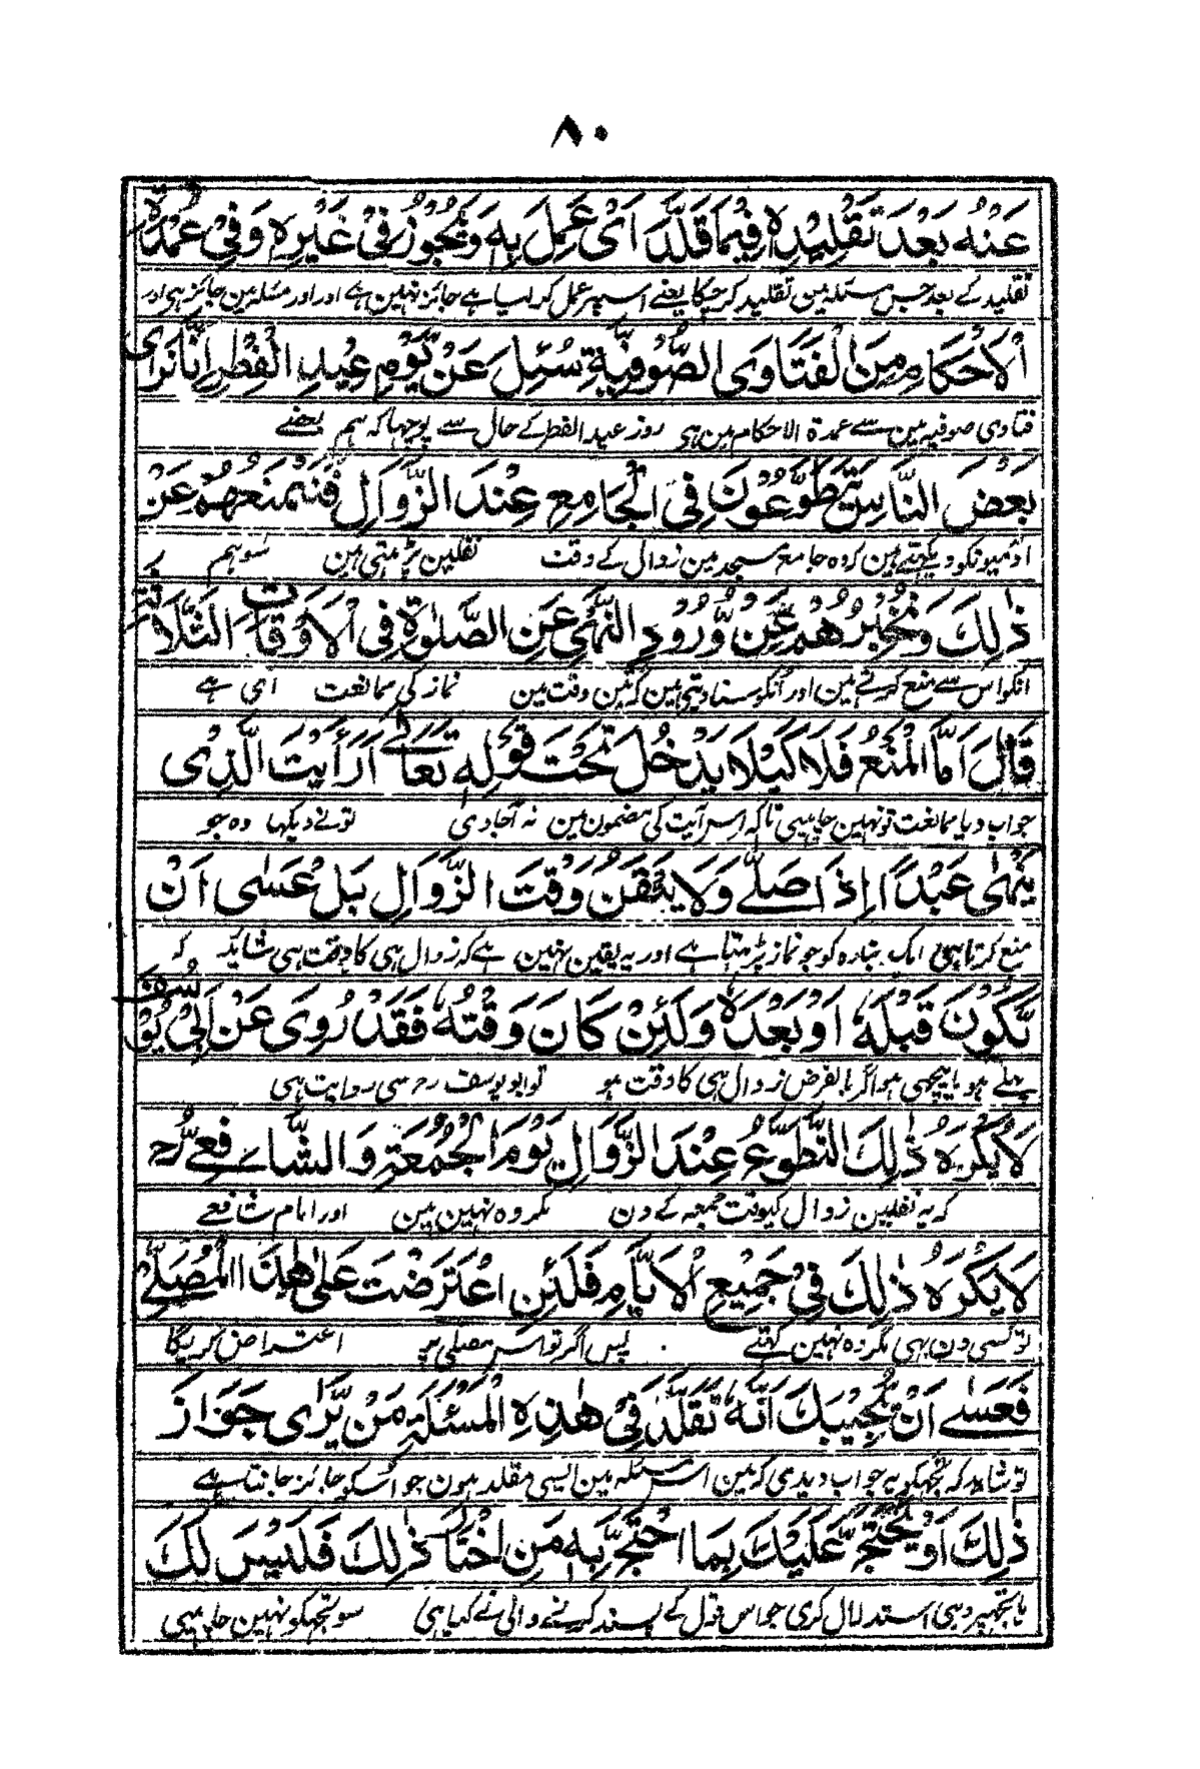 ۸۰
عَنْهُ بَعْدَ تَقْلِيْدِهٖ فِيْمَا قَلَّدَ اَیْ عَمِلَ بِهٖ وَيَجُوْزُ فِيْ غَيْرِهٖ وَفِيْ عُمْدَةِ
تقلید کے بعد جس مسئلہ مین تقلید کر چکا یعنے اسپر عمل کر لیا ہے جائز نہین ہے اور اور مسئلہ مین جائز ہی اور
الْاَحْكَامِ مِنَ الْفَتَاوَى الصُّوْفِيَّةِ سُئِلَ عَنْ يَّوْمِ عِيْدِ الْفِطْرِ اِنَّا نَرٰى
فتاوی صوفیہ مین سے عمدۃ الاحکام مین ہی روز عید الفطر کے حال سے پوچھا کہ ہم بعضے
بَعْضَ النَّاسِ يَتَطَوَّعُوْنَ فِي الْجَامِعِ عِنْدَ الزَّوَالِ فَنَمْنَعُهُمْ عَنْ
ادمیونکو دیکھتے ہین کہ وہ جامع مسجد مین زوال کے وقت نفلین پڑہتی ہین سو ہم
ذٰلِكَ وَنُخْبِرُهُمْ عَنْ وُّرُوْدِ النَّهْيِ عَنِ الصَّلٰوةِ فِي الْاَوْقَاتِ الثَّلَاثَةِ
انکو اس سے منع کرتے ہین اور انکو سنا دیتی ہین کہ تین وقت مین نماز کی ممانعت آئی ہے
قَالَ اَمَّا الْمَنْعُ فَلَا كَيْلَا يَدْخُلَ تَحْتَ قَوْلِهٖ تَعَالٰى اَرَاَيْتَ الَّذِيْ
جواب دیا ممانعت تو نہین چاہیی تاکہ اس آیت کی مضمون مین نہ آجاوی تونے دیکھا وہ جو
يَنْهٰى عَبْدًا اِذَا صَلّٰے وَلَا يَتَيَقَّنُ وَقْتَ الزَّوَالِ بَلْ عَسٰى اَنْ
منع کرتا ہی ایک بندہ کو جو نماز پڑہتا ہے اور یہ یقین نہین ہے کہ زوال ہی کا وقت ہی شاید کہ
يَّكُوْنَ قَبْلَهٗ اَوْ بَعْدَهٗ وَلَئِنْ كَانَ وَقْتُهٗ فَقَدْ رُوِىَ عَنْ اَبِيْ يُوْسُفَ
پہلے ہو یا پیچھی ہو اگر بالفرض زوال ہی کا وقت ہو تو ابو یوسف رح سی روایت ہی
لَا يَكْرَهُ ذٰلِكَ التَّطَوُّعُ عِنْدَ الزَّوَالِ يَوْمَ الْجُمُعَةِ وَالشَّافِعِیُّ رح
کہ یہ نفلین زوال کیوقت جمعہ کے دن مکروہ نہین ہین اور امام شافعے
لَا يَكْرَهُ ذٰلِكَ فِيْ جَمِيْعِ الْاَيَّامِ فَلَئِنِ اعْتَرَضْتَ عَلٰى هٰذَا الْمُصَلِّىْ
تو کسی دن بہی مکروہ نہین کہتے پس اگر تو اس مصلی پر اعتراض کریگا
فَعَسٰے اَنْ يُّجِيْبَكَ اَنَّهٗ تَقَلَّدَ فِيْ هٰذِهِ الْمَسْئَلَةِ مَنْ يَّرٰى جَوَازَ
تو شاید کہ تجھکو یہ جواب دیدی کہ مین اس مسئلہ مین ایسی مقلد ہون جو اسکو جائز جانتا ہے
ذٰلِكَ اَوْ يَحْتَجُّ عَلَيْكَ بِمَا احْتَجَّ بِهٖ مَنِ اخْتَارَ ذٰلِكَ فَلَيْسَ لَكَ
یا تجھپر وہی استدلال کری جو اس قول کے پسند کرنے والی نے کیا ہی سو تجھکو نہین چاہیی